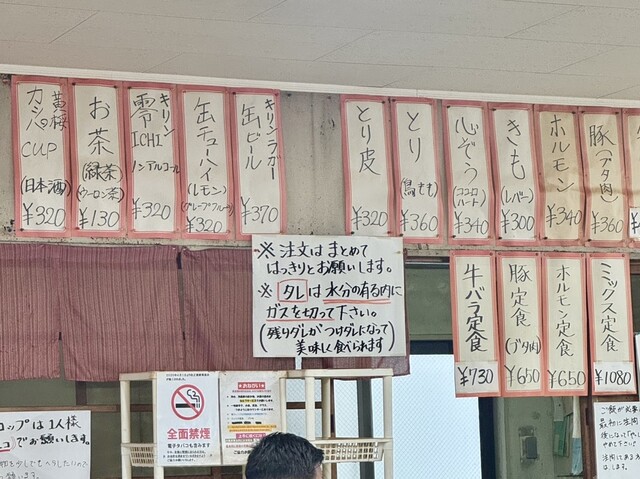 黄桜
カッパ
CUP
(日本酒)
¥320
お茶
(緑茶)
(ウーロン茶)
¥130
キリン
零ICHI
ノンアルコール
¥320
缶チューハイ
(レモン)
(グレープフルーツ)
¥320
キリンラガー
缶ビール
¥370
とり皮
¥320
とり
(鳥もも)
¥360
心ぞう
(ココロ
ハート)
¥340
きも
(レバー)
¥300
ホルモン
¥340
豚
(ブタ肉)
¥360
※ 注文は まとめて
はっきりとお願いします。
※ タレは 水分の有る内に
ガスを切って下さい。
(残りダレが つけダレになって
美味しく食べられます)
牛バラ定食
¥730
豚定食
(ブタ肉)
¥650
ホルモン定食
¥650
ミックス定食
¥1080
全面禁煙
電子タバコも含みます
コップは1人様
でお願いします。